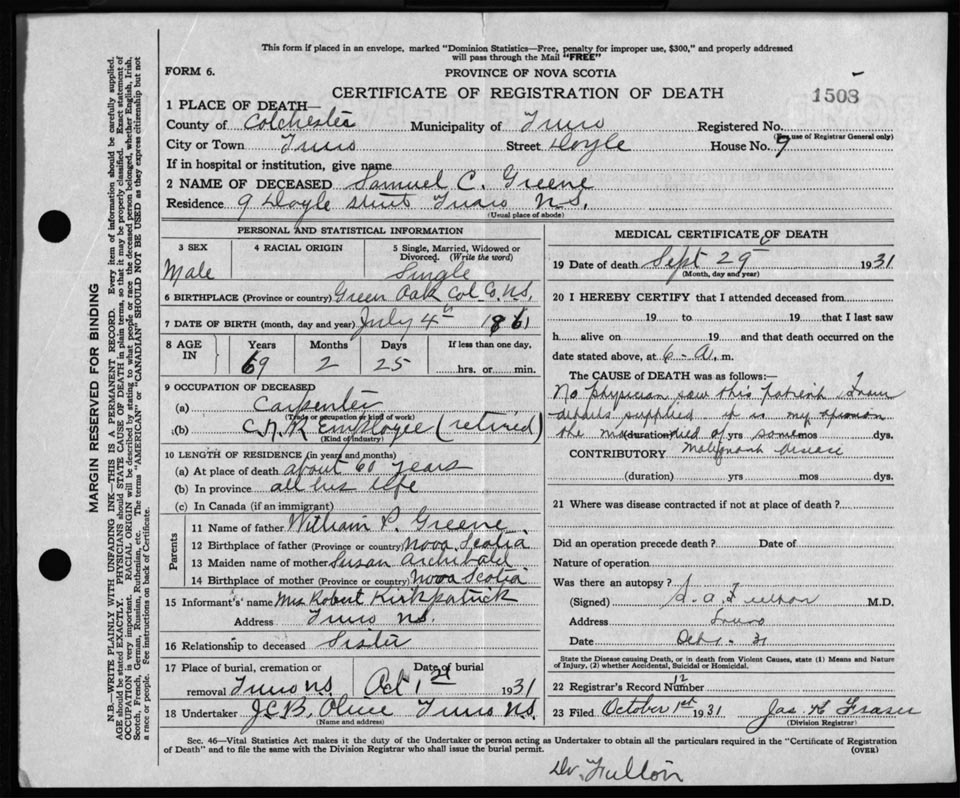 This form if placed in an envelope, marked "Dominion Statistics—Free, penalty for improper use, $300," and properly addressed
will pass through the Mail "FREE"
FORM 6.
PROVINCE OF NOVA SCOTIA
CERTIFICATE OF REGISTRATION OF DEATH
1503
1 PLACE OF DEATH—
County of Colchester Municipality of Truro Registered No.
(For use of Registrar General only)
City or Town Truro Street Doyle House No. 9
If in hospital or institution, give name
2 NAME OF DECEASED Samuel C. Greene
Residence 9 Doyle street Truro N.S.
(Usual place of abode)
PERSONAL AND STATISTICAL INFORMATION
3 SEX 4 RACIAL ORIGIN 5 Single, Married, Widowed or
Divorced. (Write the word)
Male Single
6 BIRTHPLACE (Province or country) Green Oak Col. Co. N.S.
7 DATE OF BIRTH (month, day and year) July 4th 1861
8 AGE IN Years Months Days If less than one day,
69 2 25 hrs. or min.
9 OCCUPATION OF DECEASED
(a) Carpenter
(Trade or occupation or kind of work)
(b) C.N.R. Employee (retired)
(Kind of industry)
10 LENGTH OF RESIDENCE (in years and months)
(a) At place of death about 60 years
(b) In province all his life
(c) In Canada (if an immigrant)
Parents
11 Name of father William P. Greene
12 Birthplace of father (Province or country) Nova Scotia
13 Maiden name of mother Susan Archibald
14 Birthplace of mother (Province or country) Nova Scotia
15 Informant's name Mrs Robert Kirkpatrick
Address Truro N.S.
16 Relationship to deceased Sister
17 Place of burial, cremation or Date of burial
removal Truro N.S. Oct 1st 1931
18 Undertaker J.C.B. Olive Truro N.S.
(Name and address)
MEDICAL CERTIFICATE OF DEATH
19 Date of death Sept 29 1931
(Month, day and year)
20 I HEREBY CERTIFY that I attended deceased from
19 to 19 that I last saw
h alive on 19 and that death occurred on the
date stated above, at 6 - A. m.
The CAUSE of DEATH was as follows:—
No physician saw this patient. From
details supplied it is my opinion
the man died of some
(duration) yrs mos dys.
CONTRIBUTORY Malignant Disease
(duration) yrs mos dys.
21 Where was disease contracted if not at place of death?
Did an operation precede death? Date of
Nature of operation
Was there an autopsy?
(Signed) Fulton M.D.
Address Truro
Date Oct 1 - 31
State the Disease causing Death, or in death from Violent Causes, state (1) Means and Nature
of Injury, (2) whether Accidental, Suicidal or Homicidal.
22 Registrar's Record Number 12
23 Filed October 1st 1931 Jas. H Fraser
(Division Registrar)
Sec. 46—Vital Statistics Act makes it the duty of the Undertaker or person acting as Undertaker to obtain all the particulars required in the "Certificate of Registration
of Death" and to file the same with the Division Registrar who shall issue the burial permit. (OVER)
Dr. Fulton
MARGIN RESERVED FOR BINDING
N.B.—WRITE PLAINLY WITH UNFADING INK—THIS IS A PERMANENT RECORD. Every item of information should be carefully supplied.
AGE should be stated EXACTLY. PHYSICIANS should STATE CAUSE OF DEATH in plain terms, so that it may be properly classified. Exact statement of
OCCUPATION is very important. RACIAL ORIGIN will be described by stating to what people or race the deceased person belonged, whether English, Irish,
Scotch, French, German, Russian, Ruthenian, etc. The terms "AMERICAN" or "CANADIAN" SHOULD NOT BE USED as they express citizenship but not
a race or people. See instructions on back of Certificate.